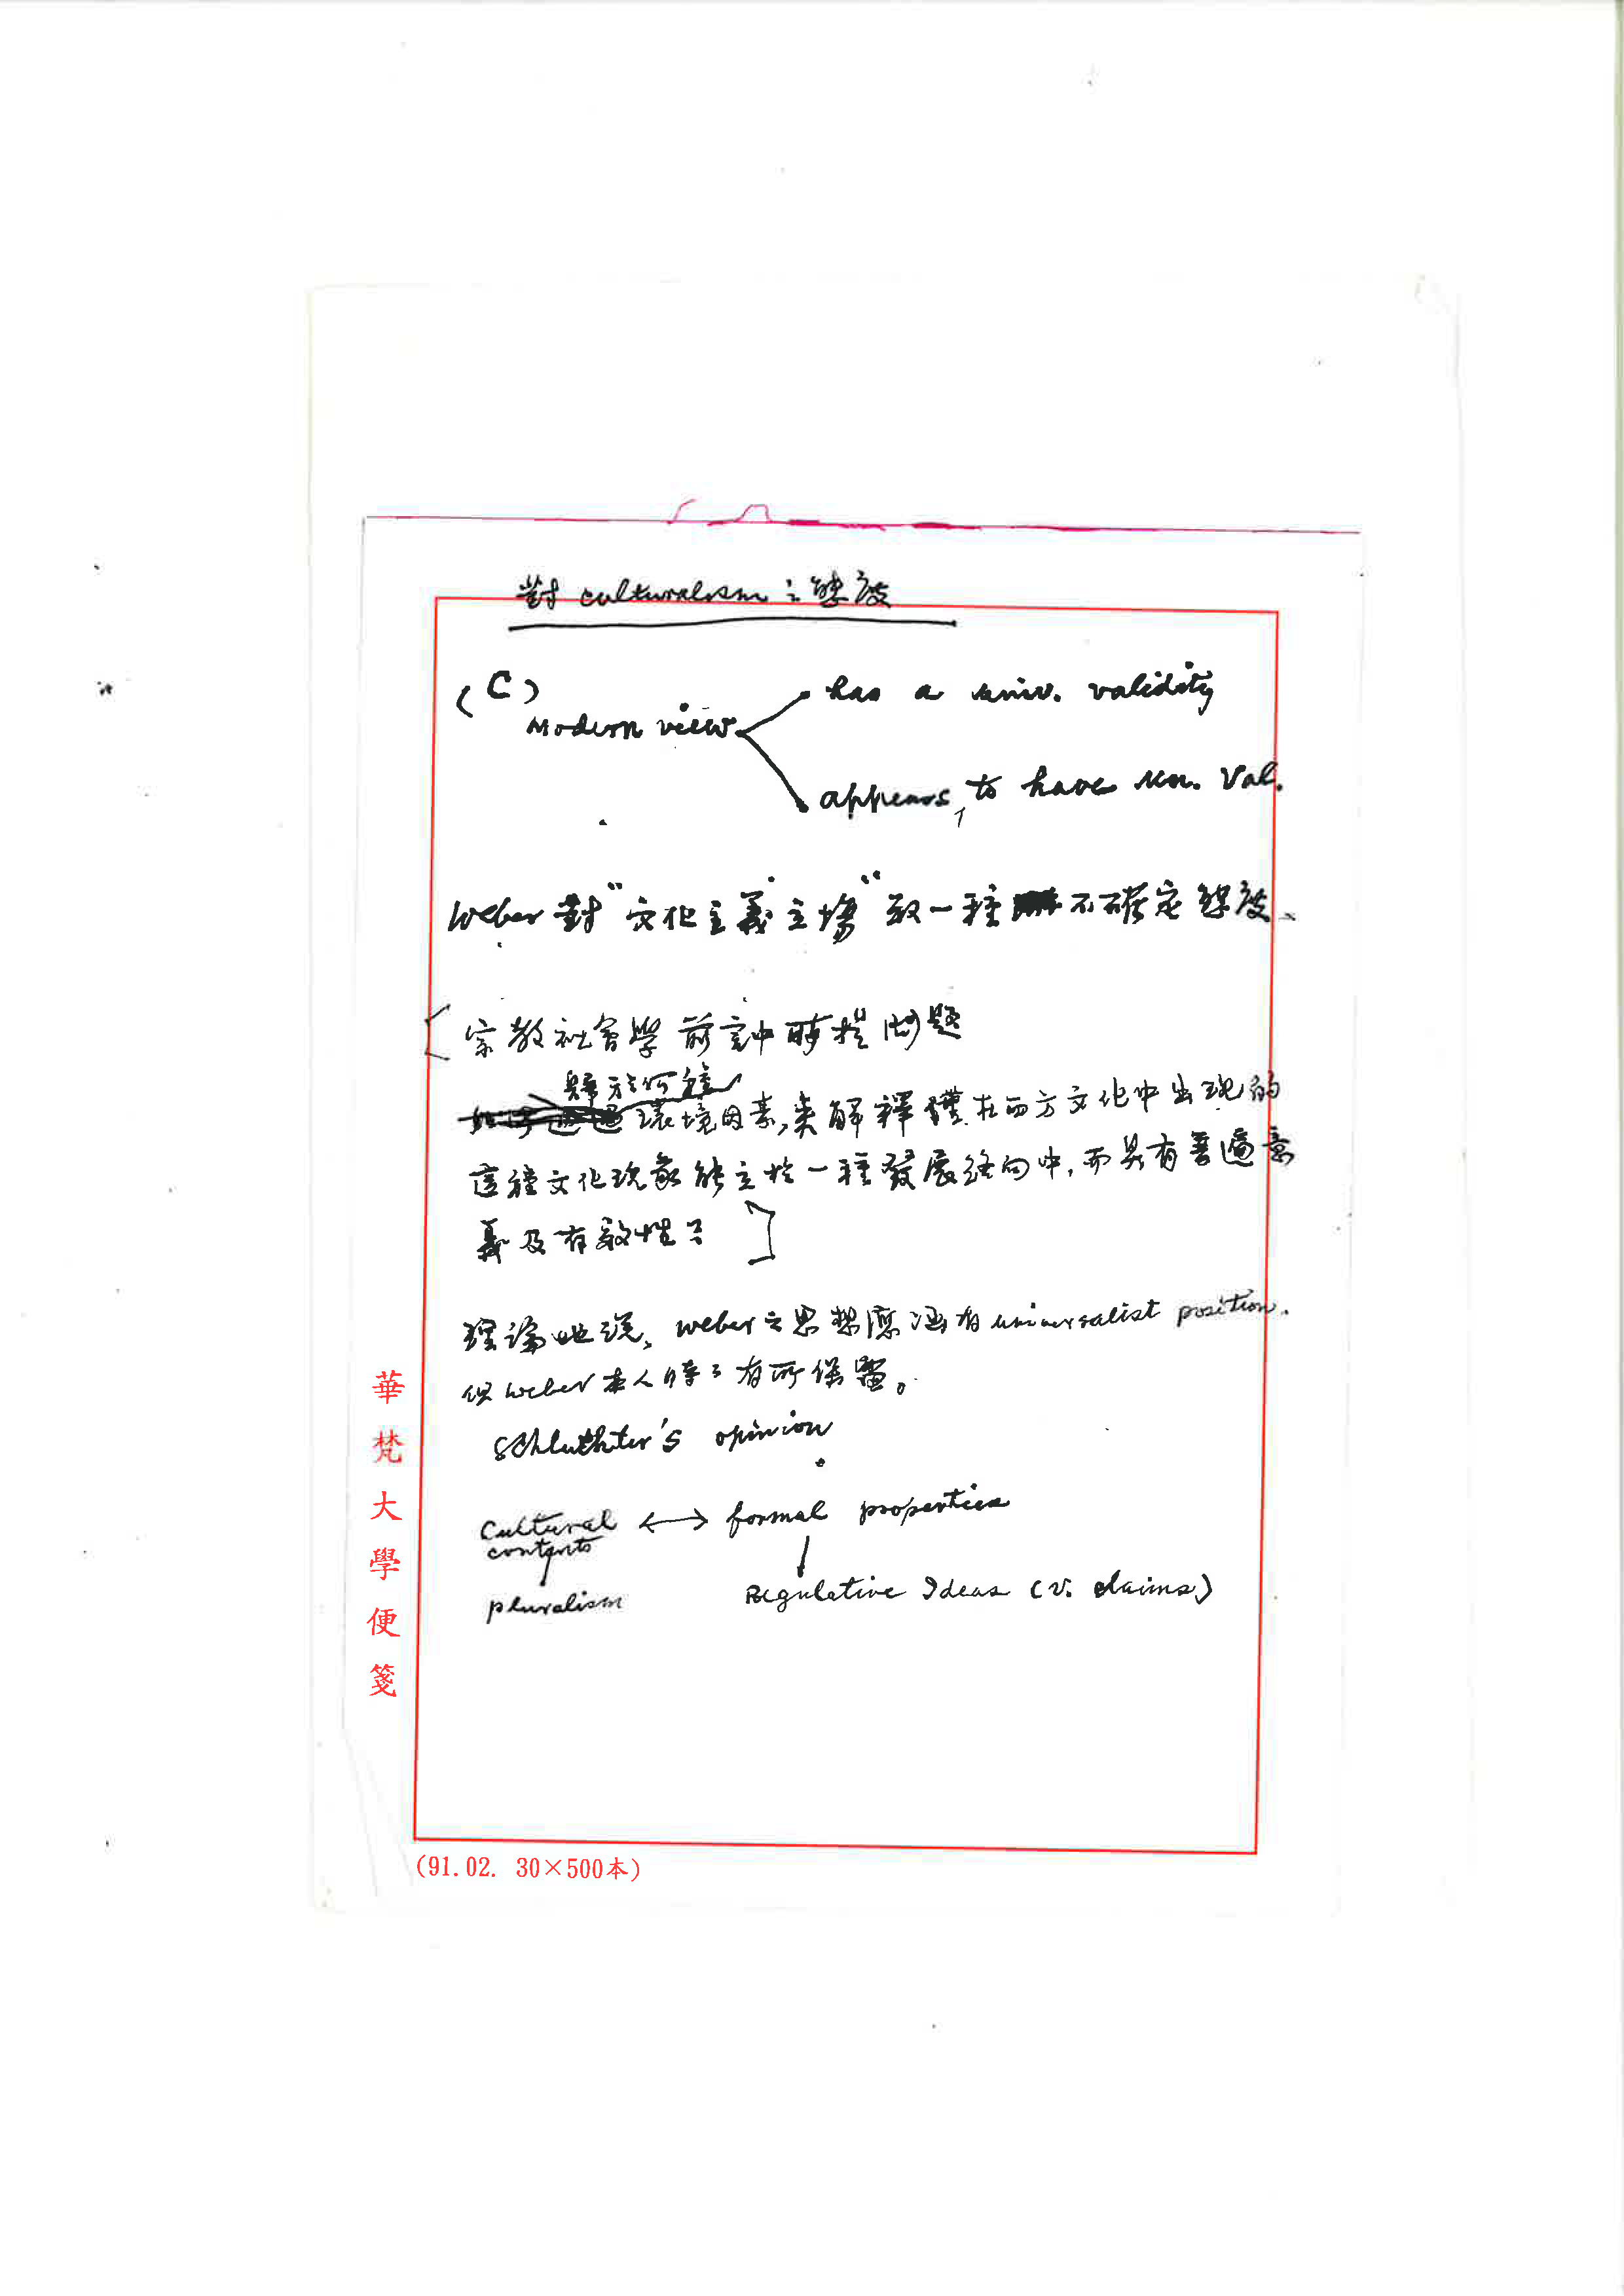 對 culturalism 之態度
(C)
Modern view
has a univ. validity
appears, to have un. Val.
Weber 對"文化主義立場"取一種不確定態度、
[宗教社會學前言中時提問題
歸於何種
環境因素,來解釋僅在西方文化中出現的
這種文化現象能立於一種發展徑向中,而具有普遍意
義及有效性?]
理論地說、Weber之思想應涵有 universalist position.
但 Weber 本人時時有所保留。
Schluthter's opinion
Cultural ↔ formal properties
contents
pluralism
Regulative Ideas (v. claims)
華梵大學便箋
(91.02. 30×500本)